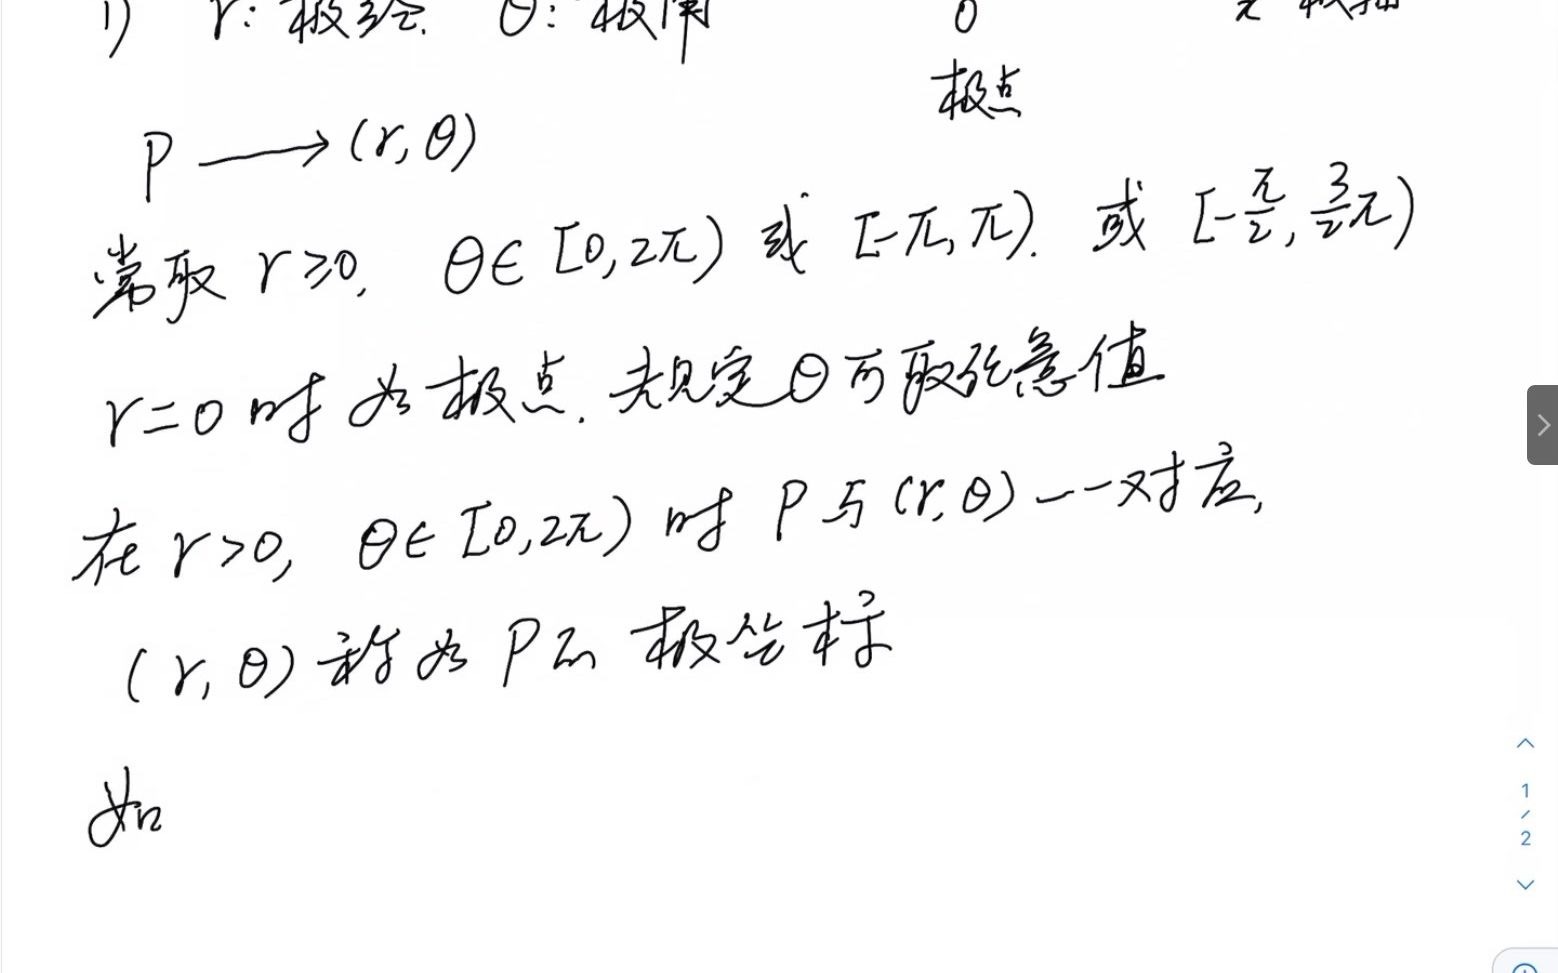 1) r: 极径. θ: 极角 0 x 极轴
极点
P ⟶ (r, θ)
常取 r≥0, θ∈[0,2π) 或 [-π,π). 或 [-π/2, 3/2π)
r=0 时为极点. 规定θ可取任意值
在 r>0, θ∈[0,2π) 时 P与(r,θ)一一对应,
(r,θ)称为P的极坐标
如
1/2